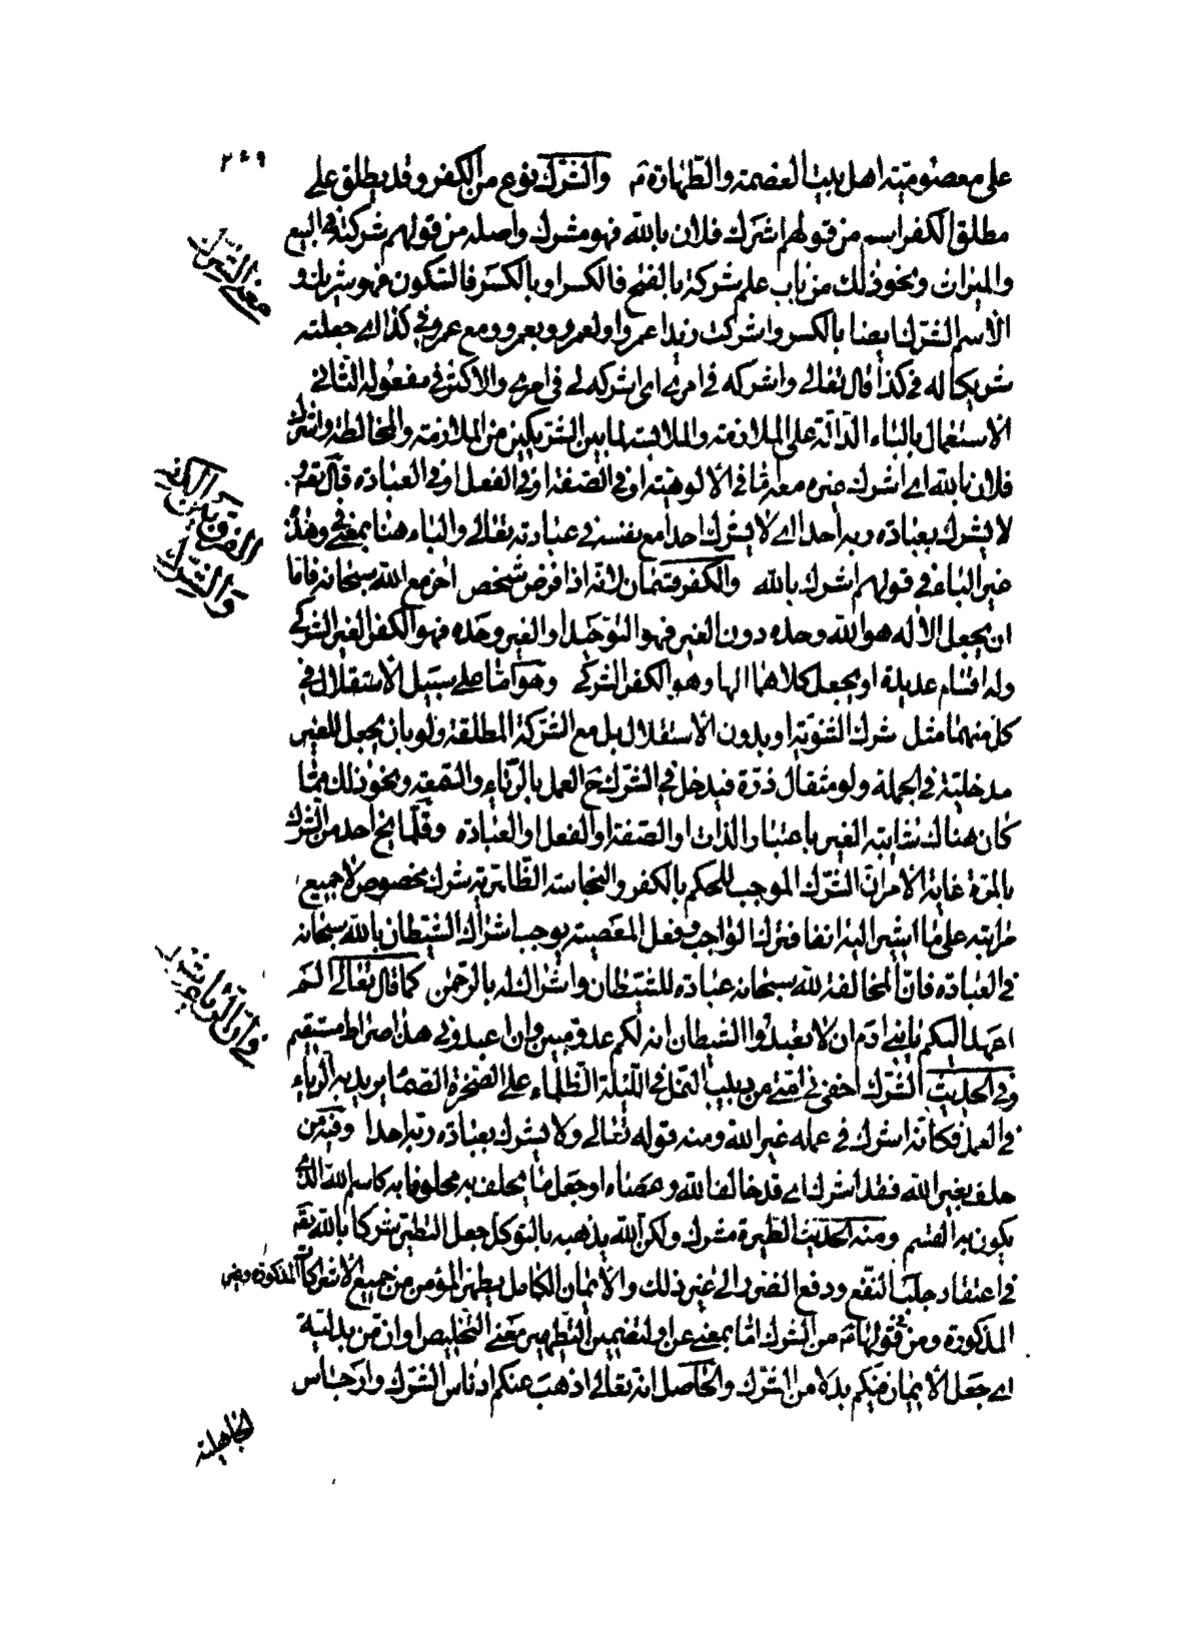 ٢٠٩
على معصومية اهل بيت العصمة والطهارة ثم والشرك نوع من الكفر وقد يطلق على
مطلق الكفر اسم من قولهم اشرك فلان بالله فهو مشرك واصله من قولهم شركته في البيع
معنى الشرك
والميراث ونحو ذلك من باب علم شركة بالفتح فالكسر او بالكسر فالسكون فهو شريك و
الاسم الشرك ايضا بالكسر واشركت زيدا عمروا ولعمرو وبعمرو ومع عمرو في كذا اى جعلته
شريكا له في كذا قال تعالى واشركه في امرى اى اشركه لى في امرى والاكثر في مفعوله الثانى
الاستعمال بالباء الدالة على الملازمة والملابسة لما بين الشريكين من الملازمة والمخالطة واشرك
فلان بالله اى اشرك غيره معه تعالى في الالوهية او في الصفة او في الفعل او في العبادة قال تعالى و
الفرق بين الكفر
والشرك
لا يشرك بعبادة ربه احدا اى لا يشرك احدا مع نفسه في عبادته تعالى والباء هنا بمعنى في وهذه
غير الباء في قولهم اشرك بالله والكفر قسمان لانه اذا فرض شخص اخر مع الله سبحانه فاما
ان يجعل الاله هو الله وحده دون الغير فهو التوحيد او الغير وحده فهو الكفر الغير الشركى
وله اقسام عديدة او يجعل كلاهما الها وهو الكفر الشركى وهو اما على سبيل الاستقلال في
كل منهما مثل شرك الثنوية او بدون الاستقلال بل مع الشركة المطلقة ولو بان يجعل للغير
مدخلية في الجملة ولو مثقال ذرة فيدخل في الشرك ح العمل بالرياء والسمعة ونحو ذلك مما
كان هناك شايبة الغير باعتبار الذات او الصفة او الفعل او العبادة وقلما ينج احد من الشرك
بالمرة غاية الامر ان الشرك الموجب للحكم بالكفر والنجاسة الظاهرية شرك مخصوص لا جميع
مراتبه على ما اشير اليه انفا فترك الواجب وفعل المعصية يوجب اشراك الشيطان بالله سبحانه
في العبادة فان المخالفة لله سبحانه عبادة للشيطان واشراك له بالرحمن كما قال تعالى الم
في ان الرياء شرك
اعهد اليكم يا بنى ادم ان لا تعبدوا الشيطان انه لكم عدو مبين وان اعبدونى هذا صراط مستقيم
وفى الحديث الشرك اخفى في امتى من دبيب النمل في الليلة الظلماء على الصخرة الصماء يريد به الرياء
في العمل فكانه اشرك في عمله غير الله ومنه قوله تعالى ولا يشرك بعبادة ربه احدا وفيه من
حلف بغير الله فقد اشرك اى قد خالف الله وعصاه او جعل ما يحلف به محلوفا به كاسم الله الذى
يكون به القسم ومنه الحديث الطيرة شرك ولكن الله يذهبه بالتوكل جعل التطير شركا بالله تعه
في اعتقاد جلب النفع ودفع الضرر الى غير ذلك والايمان الكامل يطهر المؤمن من جميع الاشراكات المذكورة
المذكورة ومن في قولها من الشرك اما بمعنى عن او لتضمين التطهير معنى التخليص او ان من بدلية
اى جعل الايمان منكم بدلا من الشرك والحاصل انه تعالى اذهب عنكم ادناس الشرك وارجاس
الجاهلية